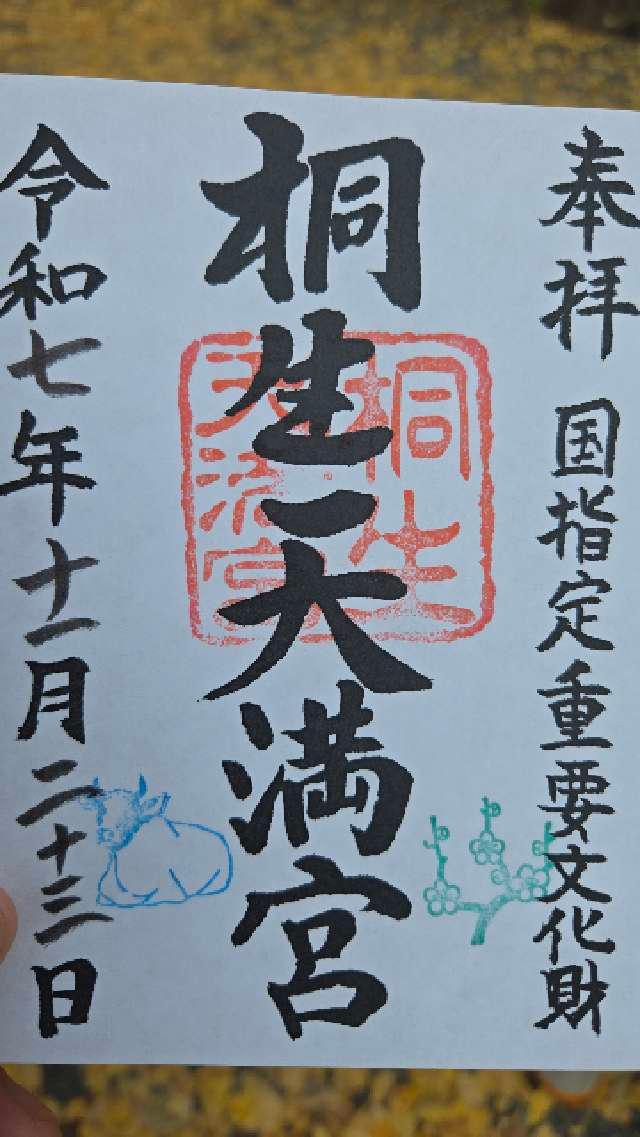 奉拝 国指定重要文化財
桐生天満宮
桐生
天満宮
令和七年十一月二十三日